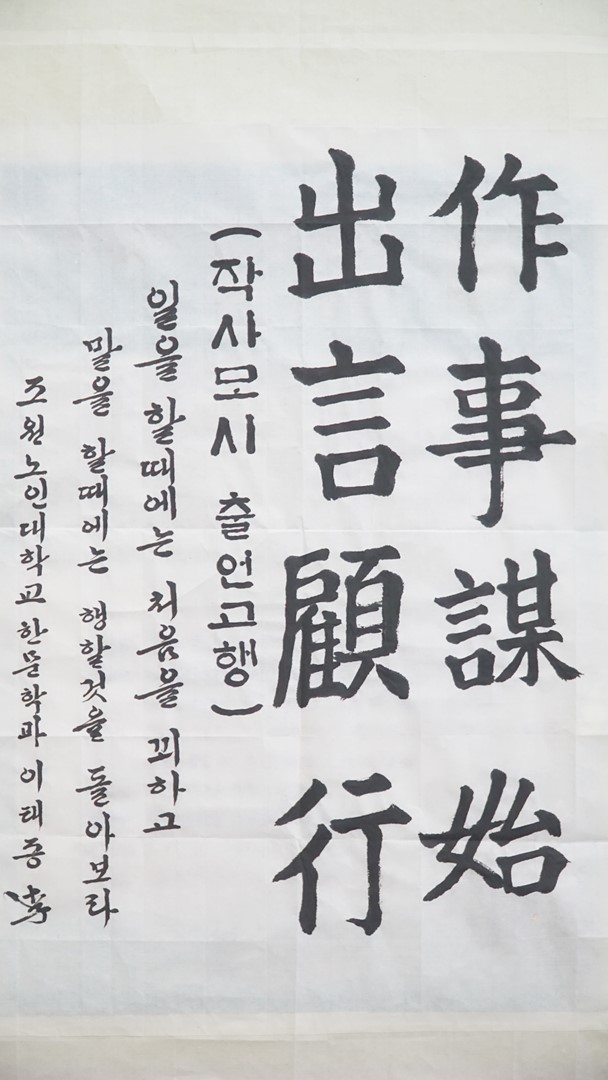 作事謀始
出言顧行
(작사모시 출언고행)
일을 할때에는 처음을 꾀하고
말을 할때에는 행할것을 돌아보라
조원노인대학교 한문학과 이태종